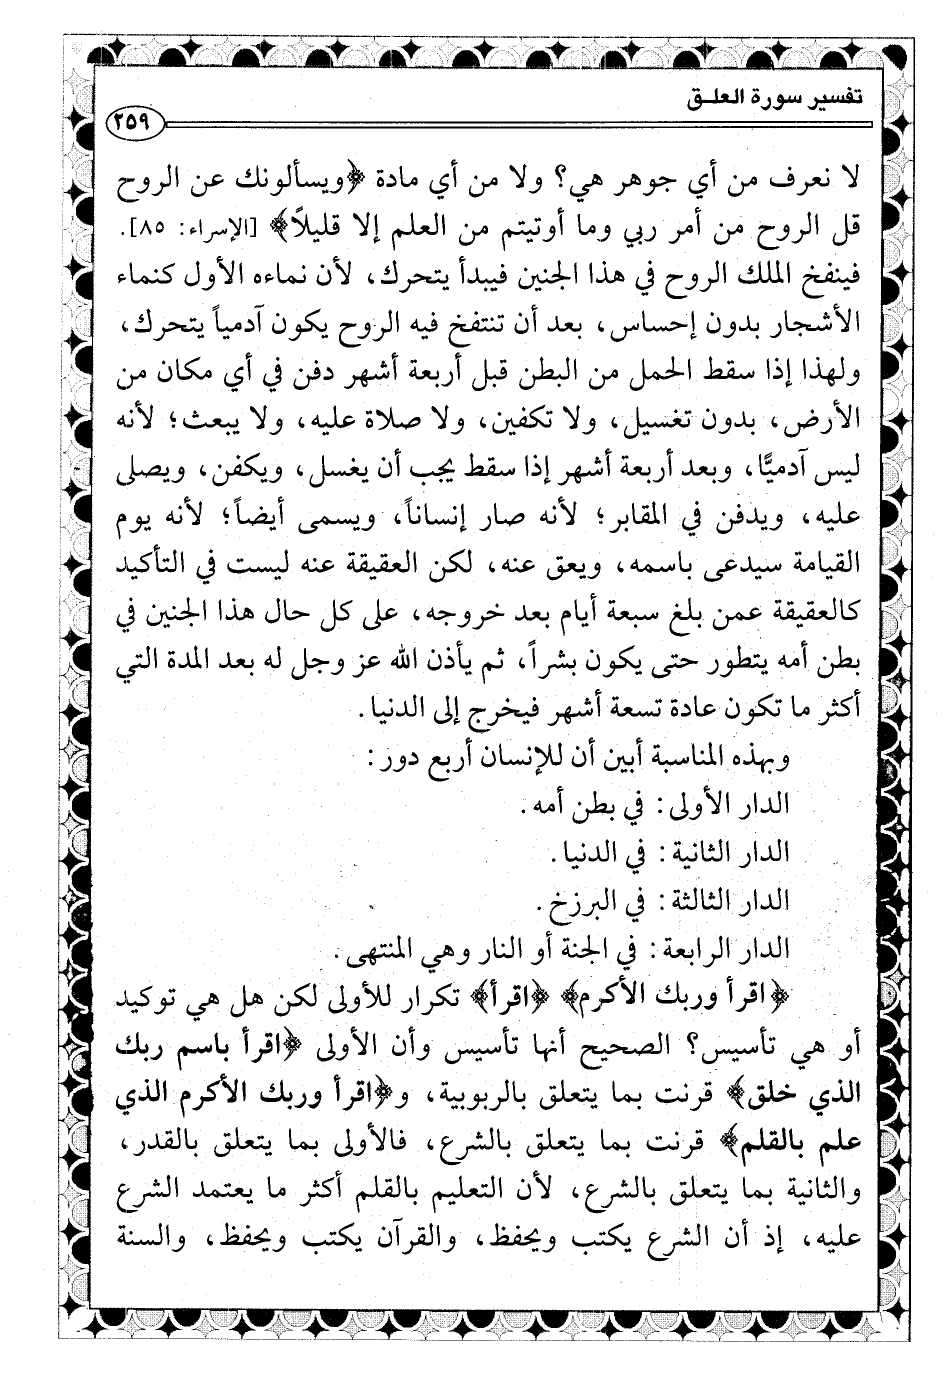 تفسير سورة العلـق
٢٥٩
لا نعرف من أي جوهر هي؟ ولا من أي مادة ﴿ويسألونك عن الروح
قل الروح من أمر ربي وما أوتيتم من العلم إلا قليلاً﴾ [الإسراء: ٨٥].
فينفخ الملك الروح في هذا الجنين فيبدأ يتحرك، لأن نماءه الأول كنماء
الأشجار بدون إحساس، بعد أن تنتفخ فيه الروح يكون آدمياً يتحرك،
ولهذا إذا سقط الحمل من البطن قبل أربعة أشهر دفن في أي مكان من
الأرض، بدون تغسيل، ولا تكفين، ولا صلاة عليه، ولا يبعث؛ لأنه
ليس آدميًّا، وبعد أربعة أشهر إذا سقط يجب أن يغسل، ويكفن، ويصلى
عليه، ويدفن في المقابر؛ لأنه صار إنساناً، ويسمى أيضاً؛ لأنه يوم
القيامة سيدعى باسمه، ويعق عنه، لكن العقيقة عنه ليست في التأكيد
كالعقيقة عمن بلغ سبعة أيام بعد خروجه، على كل حال هذا الجنين في
بطن أمه يتطور حتى يكون بشراً، ثم يأذن الله عز وجل له بعد المدة التي
أكثر ما تكون عادة تسعة أشهر فيخرج إلى الدنيا.
وبهذه المناسبة أبين أن للإنسان أربع دور:
الدار الأولى: في بطن أمه.
الدار الثانية: في الدنيا.
الدار الثالثة: في البرزخ.
الدار الرابعة: في الجنة أو النار وهي المنتهى.
﴿اقرأ وربك الأكرم﴾ ﴿اقرأ﴾ تكرار للأولى لكن هل هي توكيد
أو هي تأسيس؟ الصحيح أنها تأسيس وأن الأولى ﴿اقرأ باسم ربك
الذي خلق﴾ قرنت بما يتعلق بالربوبية، و﴿اقرأ وربك الأكرم الذي
علم بالقلم﴾ قرنت بما يتعلق بالشرع، فالأولى بما يتعلق بالقدر،
والثانية بما يتعلق بالشرع، لأن التعليم بالقلم أكثر ما يعتمد الشرع
عليه، إذ أن الشرع يكتب ويحفظ، والقرآن يكتب ويحفظ، والسنة